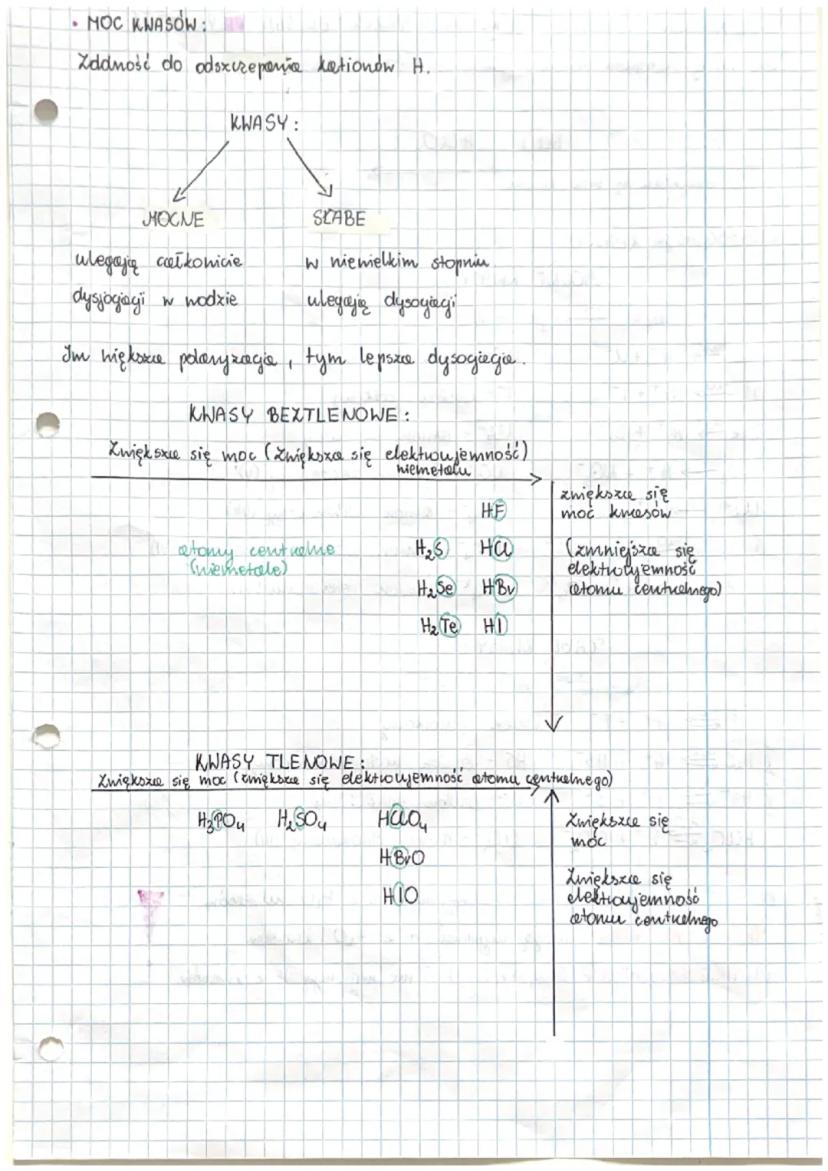 • MOC KWASÓW:
Zdolność do odszczepania kationów H.
KWASY:
MOCNE
SŁABE
ulegają całkowicie
dysjogacji w wodzie
w niewielkim stopniu
ulegają dysogiacji
Im większa polaryzacja, tym lepsza dysogiacja.
KWASY BEZTLENOWE:
Zwiększa się moc (zwiększa się elektroujemność)
niemetalu
HF
H₂S HCl
H₂Se HBr
H₂Te HI
atomy centralne
(niemetale)
zwiększa się
moc kwasów
(zmniejsza się
elektroujemność
atomu centralnego)
KWASY TLENOWE:
Zwiększa się moc (zwiększa się elektroujemność atomu centralnego)
H₃PO₄ H₂SO₄ HClO₄
HBrO
HIO
Zwiększa się
moc
Zwiększa się
elektroujemność
atomu centralnego